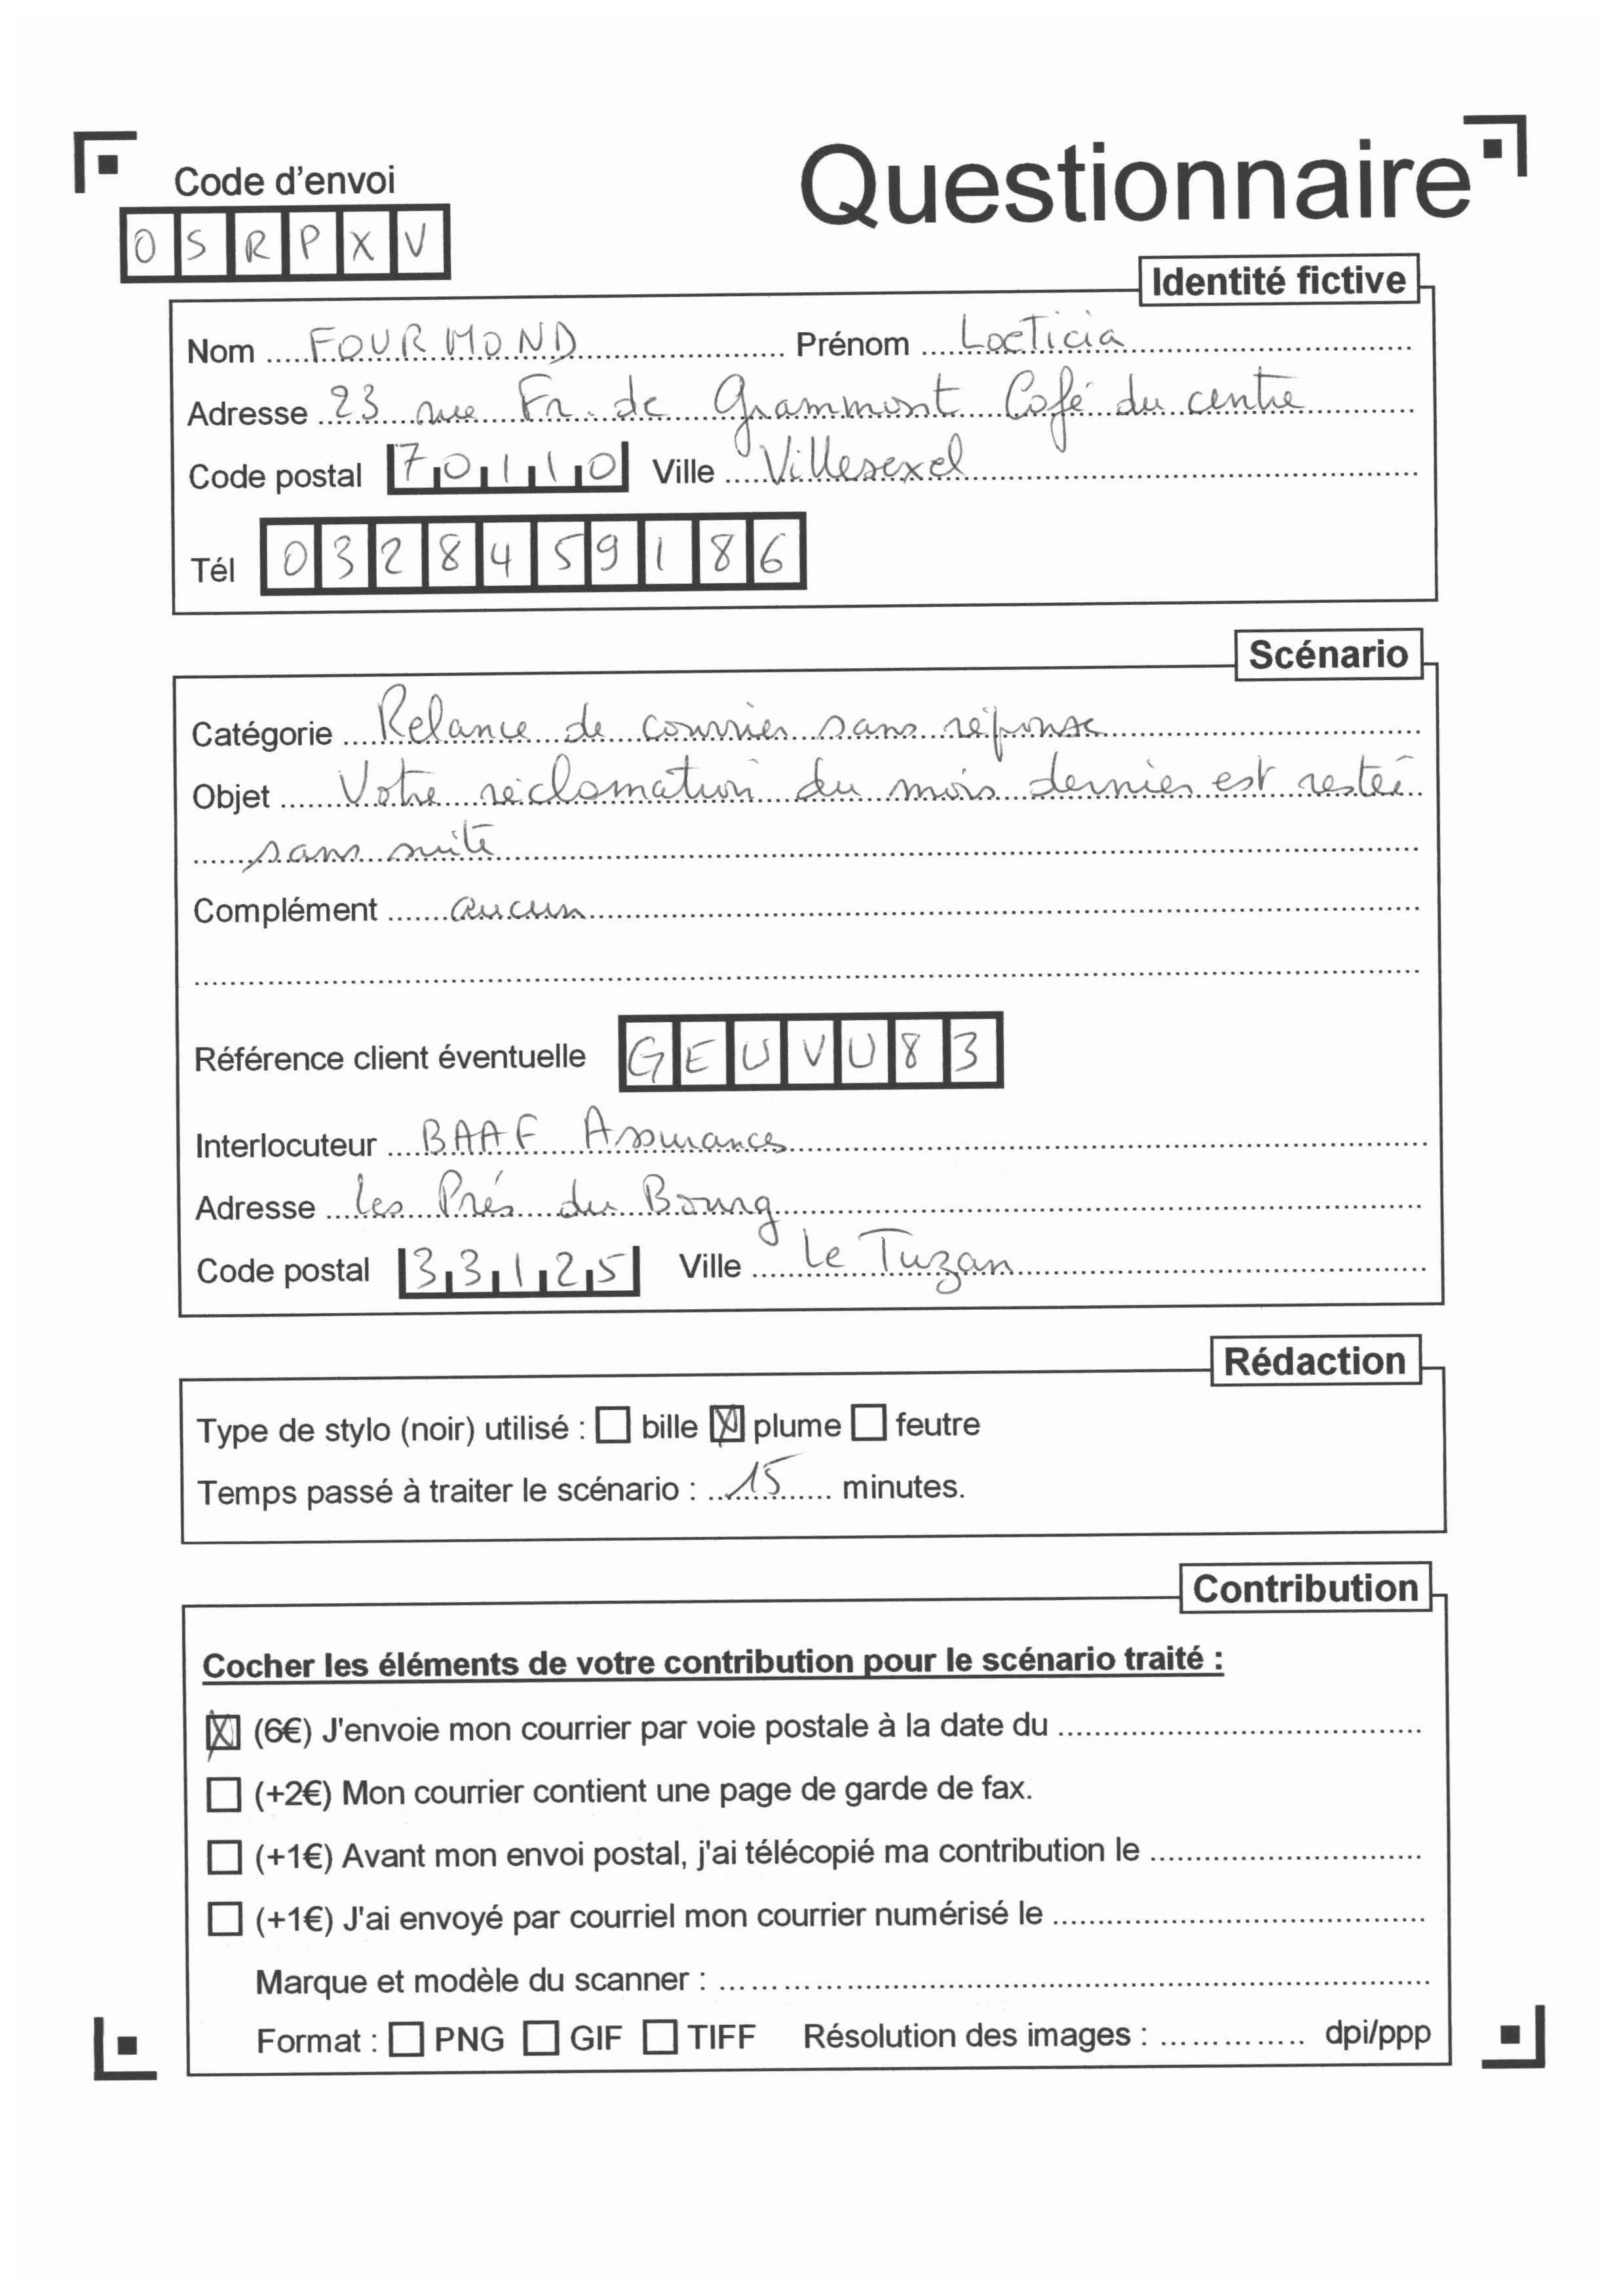 Questionnaire
Code d'envoi
OSRPXV
Identité fictive
Nom FOURMOND Prénom Laeticia
Adresse 23 rue Fr. de Grammont Café du centre
Code postal 70110 Ville Villesexel
Tél 0328459186
Scénario
Catégorie Relance de courrier sans réponse
Objet Votre réclamation du mois dernier est restée
sans suite
Complément aucun
Référence client éventuelle GEUVU83
Interlocuteur BAAF Assurances
Adresse Les Prés du Bourg
Code postal 33125 Ville Le Tuzan
Rédaction
Type de stylo (noir) utilisé : bille plume feutre
Temps passé à traiter le scénario : 15 minutes.
Contribution
Cocher les éléments de votre contribution pour le scénario traité :
(6€) J'envoie mon courrier par voie postale à la date du
(+2€) Mon courrier contient une page de garde de fax.
(+1€) Avant mon envoi postal, j'ai télécopié ma contribution le
(+1€) J'ai envoyé par courriel mon courrier numérisé le
Marque et modèle du scanner :
Format : PNG GIF TIFF Résolution des images : dpi/ppp